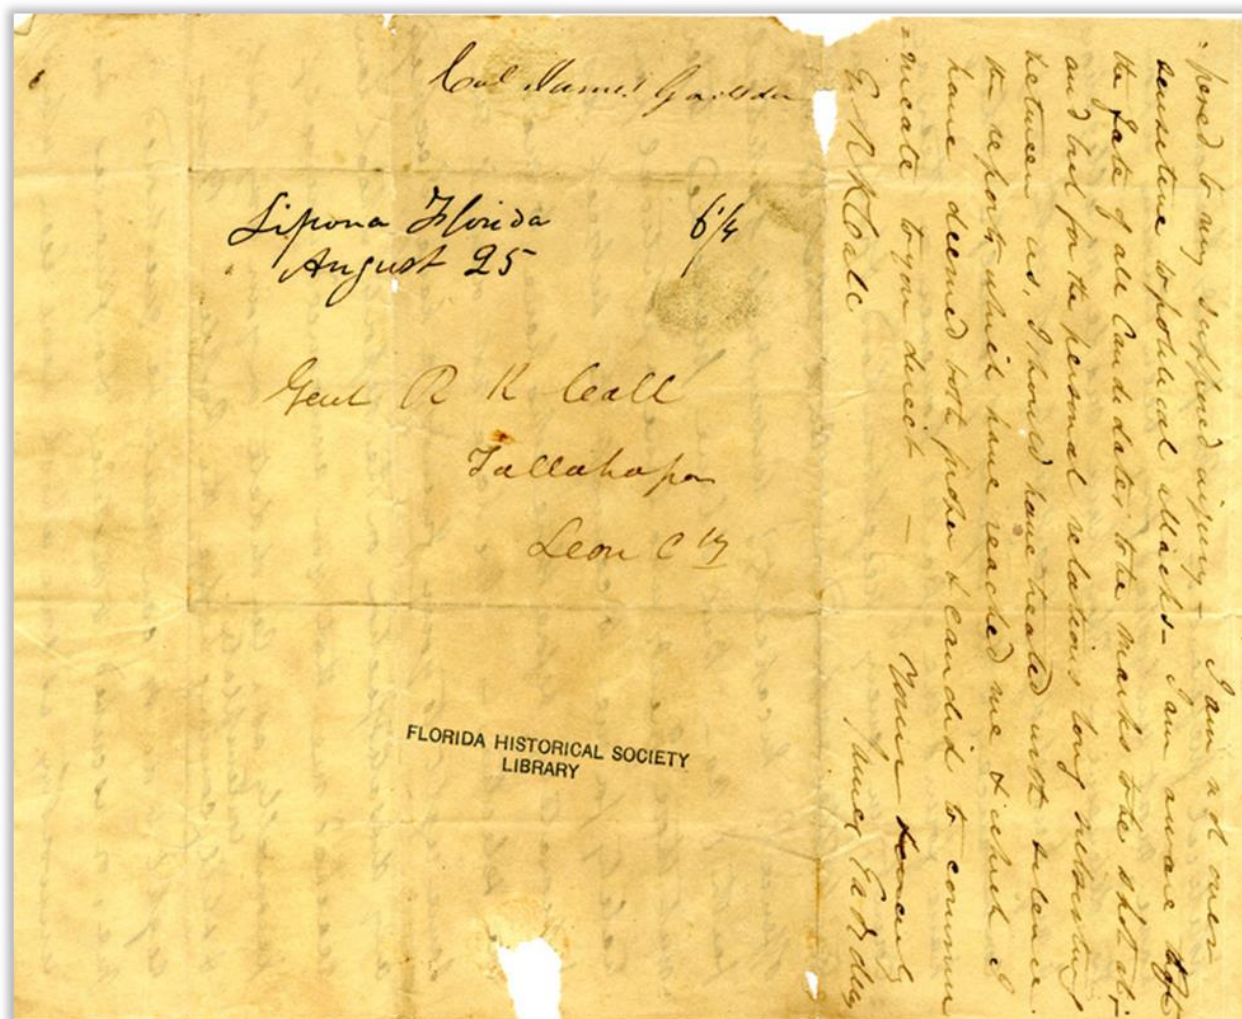 Col James Gadsden
Lipona Florida 6¼
August 25
Genl R K Call
Tallahassee
Leon Cty
FLORIDA HISTORICAL SOCIETY
LIBRARY
posed to any supposed injury — I am not over
sensitive to political attacks — I am aware
the fate of all Candidates to be marks to be shot at;
and but for the personal relations long subsisting
between us, I should have treated with silence
the reports which have reached me & which I
have deemed both proper & candid to commun
=nicate to you direct —
Yours sincerely
G R K Call James Gadsden